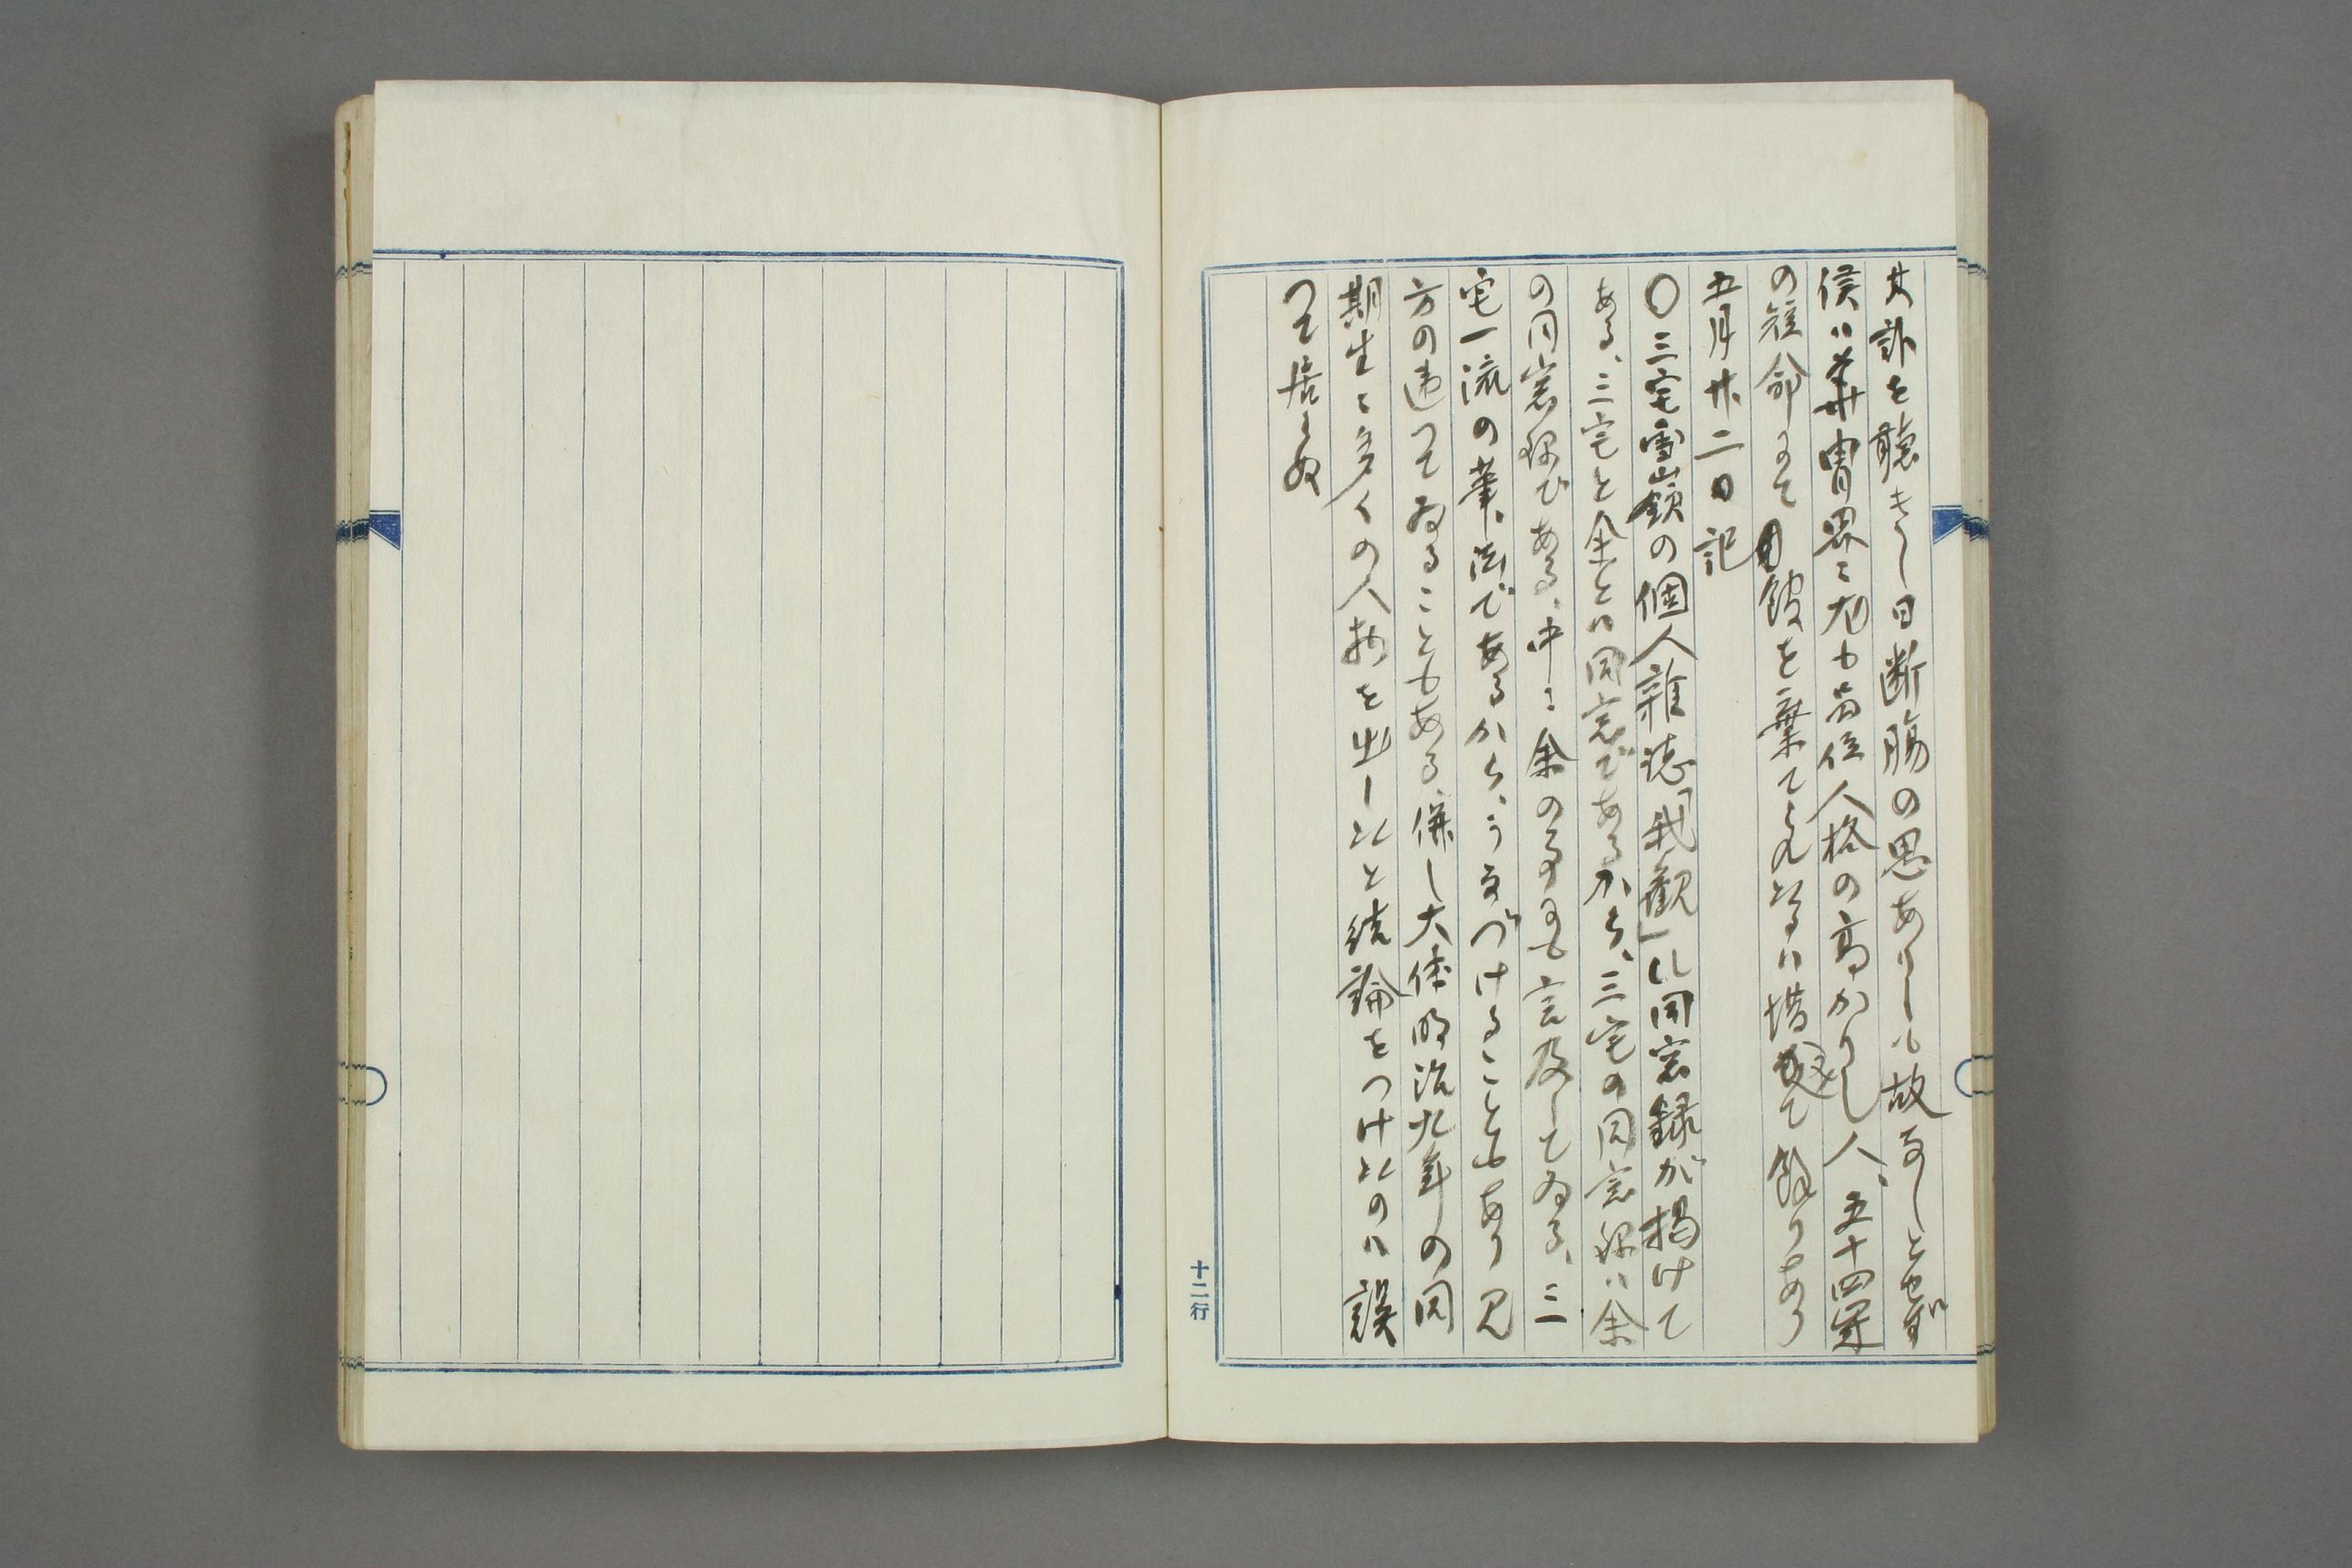 其訃を聴きし日断膓の思ありしも故なしとせず
侯ハ華冑界ニ尤も名位人格の高かりし人、五十四歳
の短命にて館を棄てられたるハ惜みても餘りあり
五月廿二日記
〇三宅雪嶺の個人雑誌「我観」に同窓録が掲けて
ある、三宅と余とハ同窓であるから、三宅の同窓録ハ余
の同窓録である、中ニ余の事にも言及してゐる、三
宅一流の筆法であるから、うなづけることもあり見
方の違つてゐることもある、併し大体明治九年の同
期生ニ多くの人物を出したと結論をつけたのハ誤
つて居らぬ
十二行